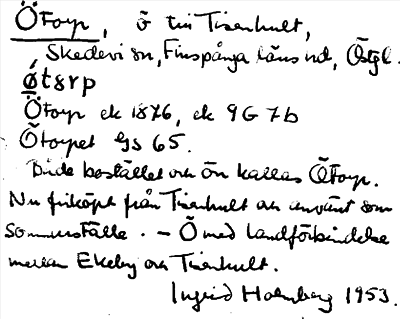 Ötorp, ö till Tisenhult,
Skedevi sn, Finspånga läns hd, Östgl.
ø̀tɛrp
Ötorp ek 1876, ek 9G 7b
Ötorpet GS 65.
Både bostället och ön kallas Ötorp.
Nu friköpt från Tisenhult och använt som
sommarställe. – Ö med landförbindelse
mellan Ekeby och Tisenhult.
Ingrid Holmberg 1953.